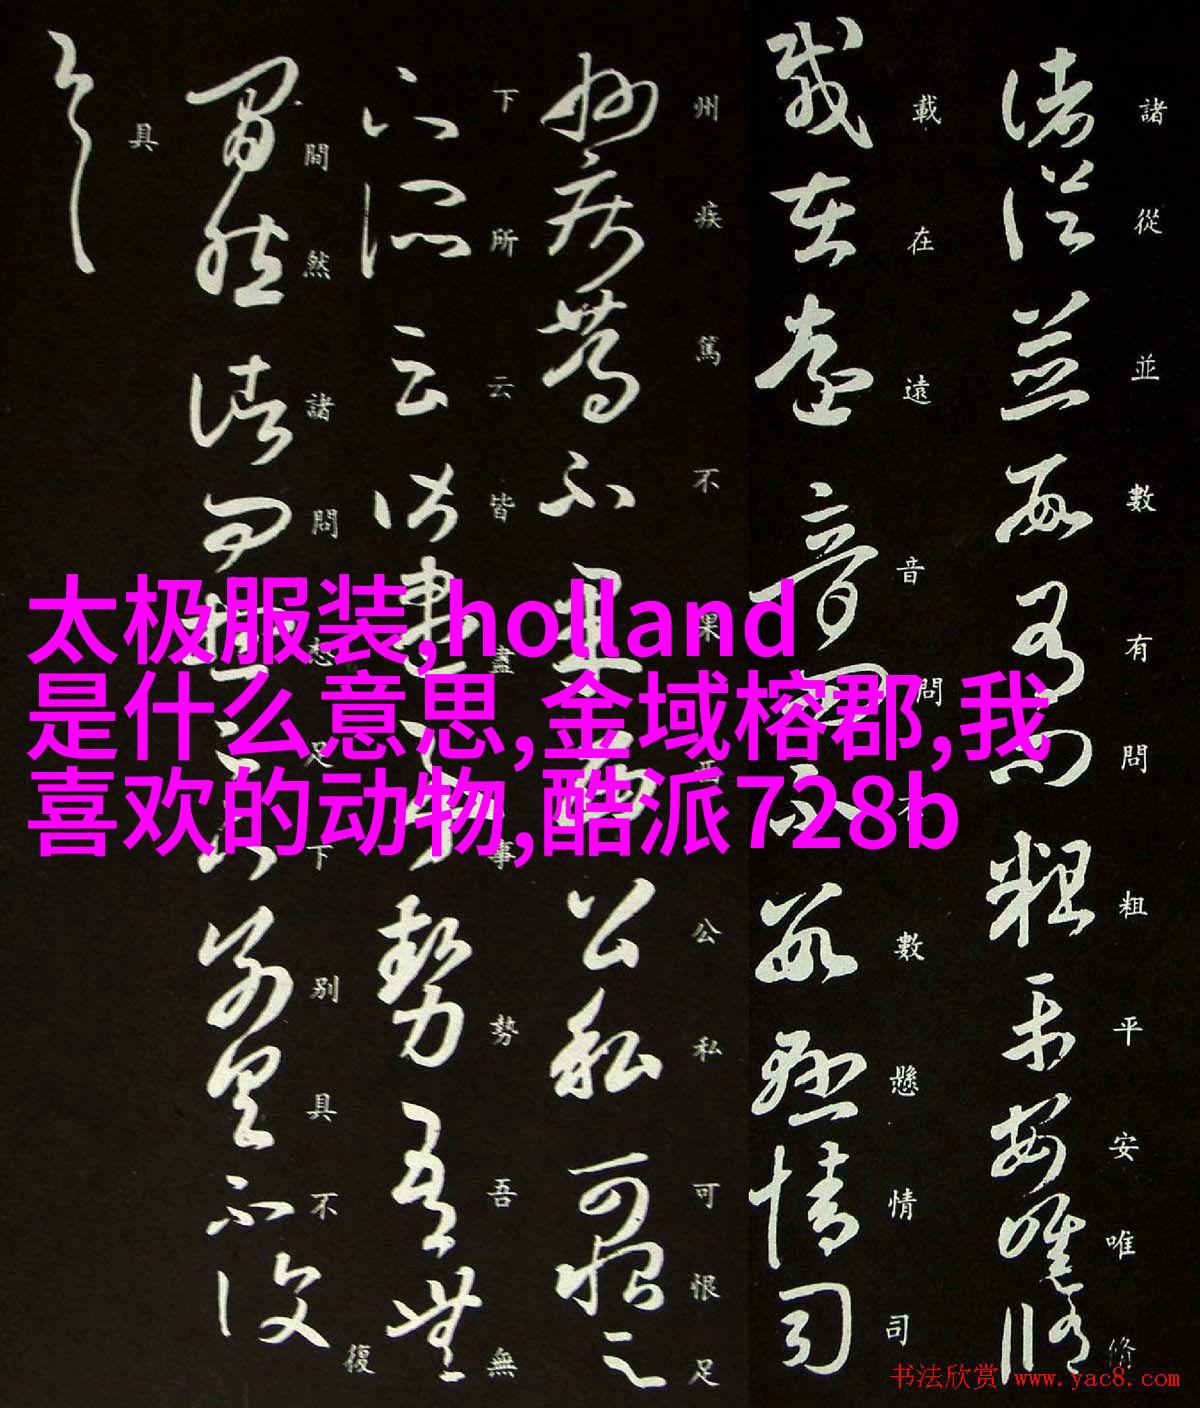 諸從並數有問粗平安唯修
載在遠音問不數懸情司
州疾篤不果西公私可恨足
下所云皆盡事勢吾無
間然諸問想足下別具不復
具
太极服装,holland
是什么意思,金域榕郡,我
喜欢的动物,酷派728b
书法欣赏 www.yac8.com